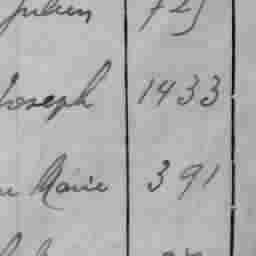 Julien 725
Joseph 1433
Marie 391